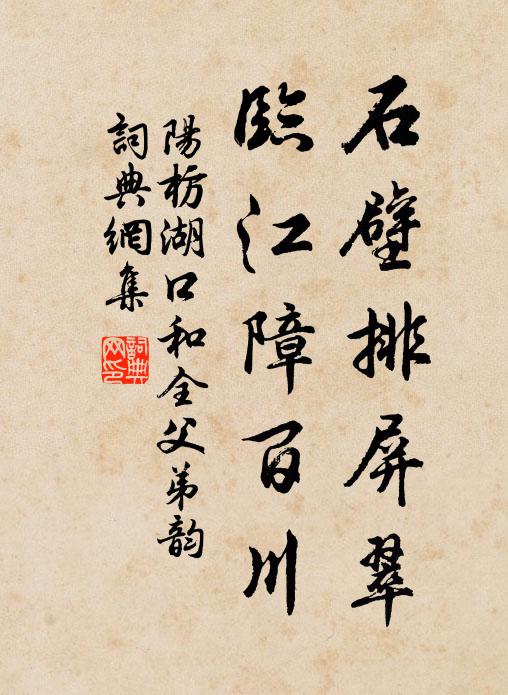 石壁排屏翠
臨江障百川
陽枋湖口和全父弟韵
詞典網集
詞典網印